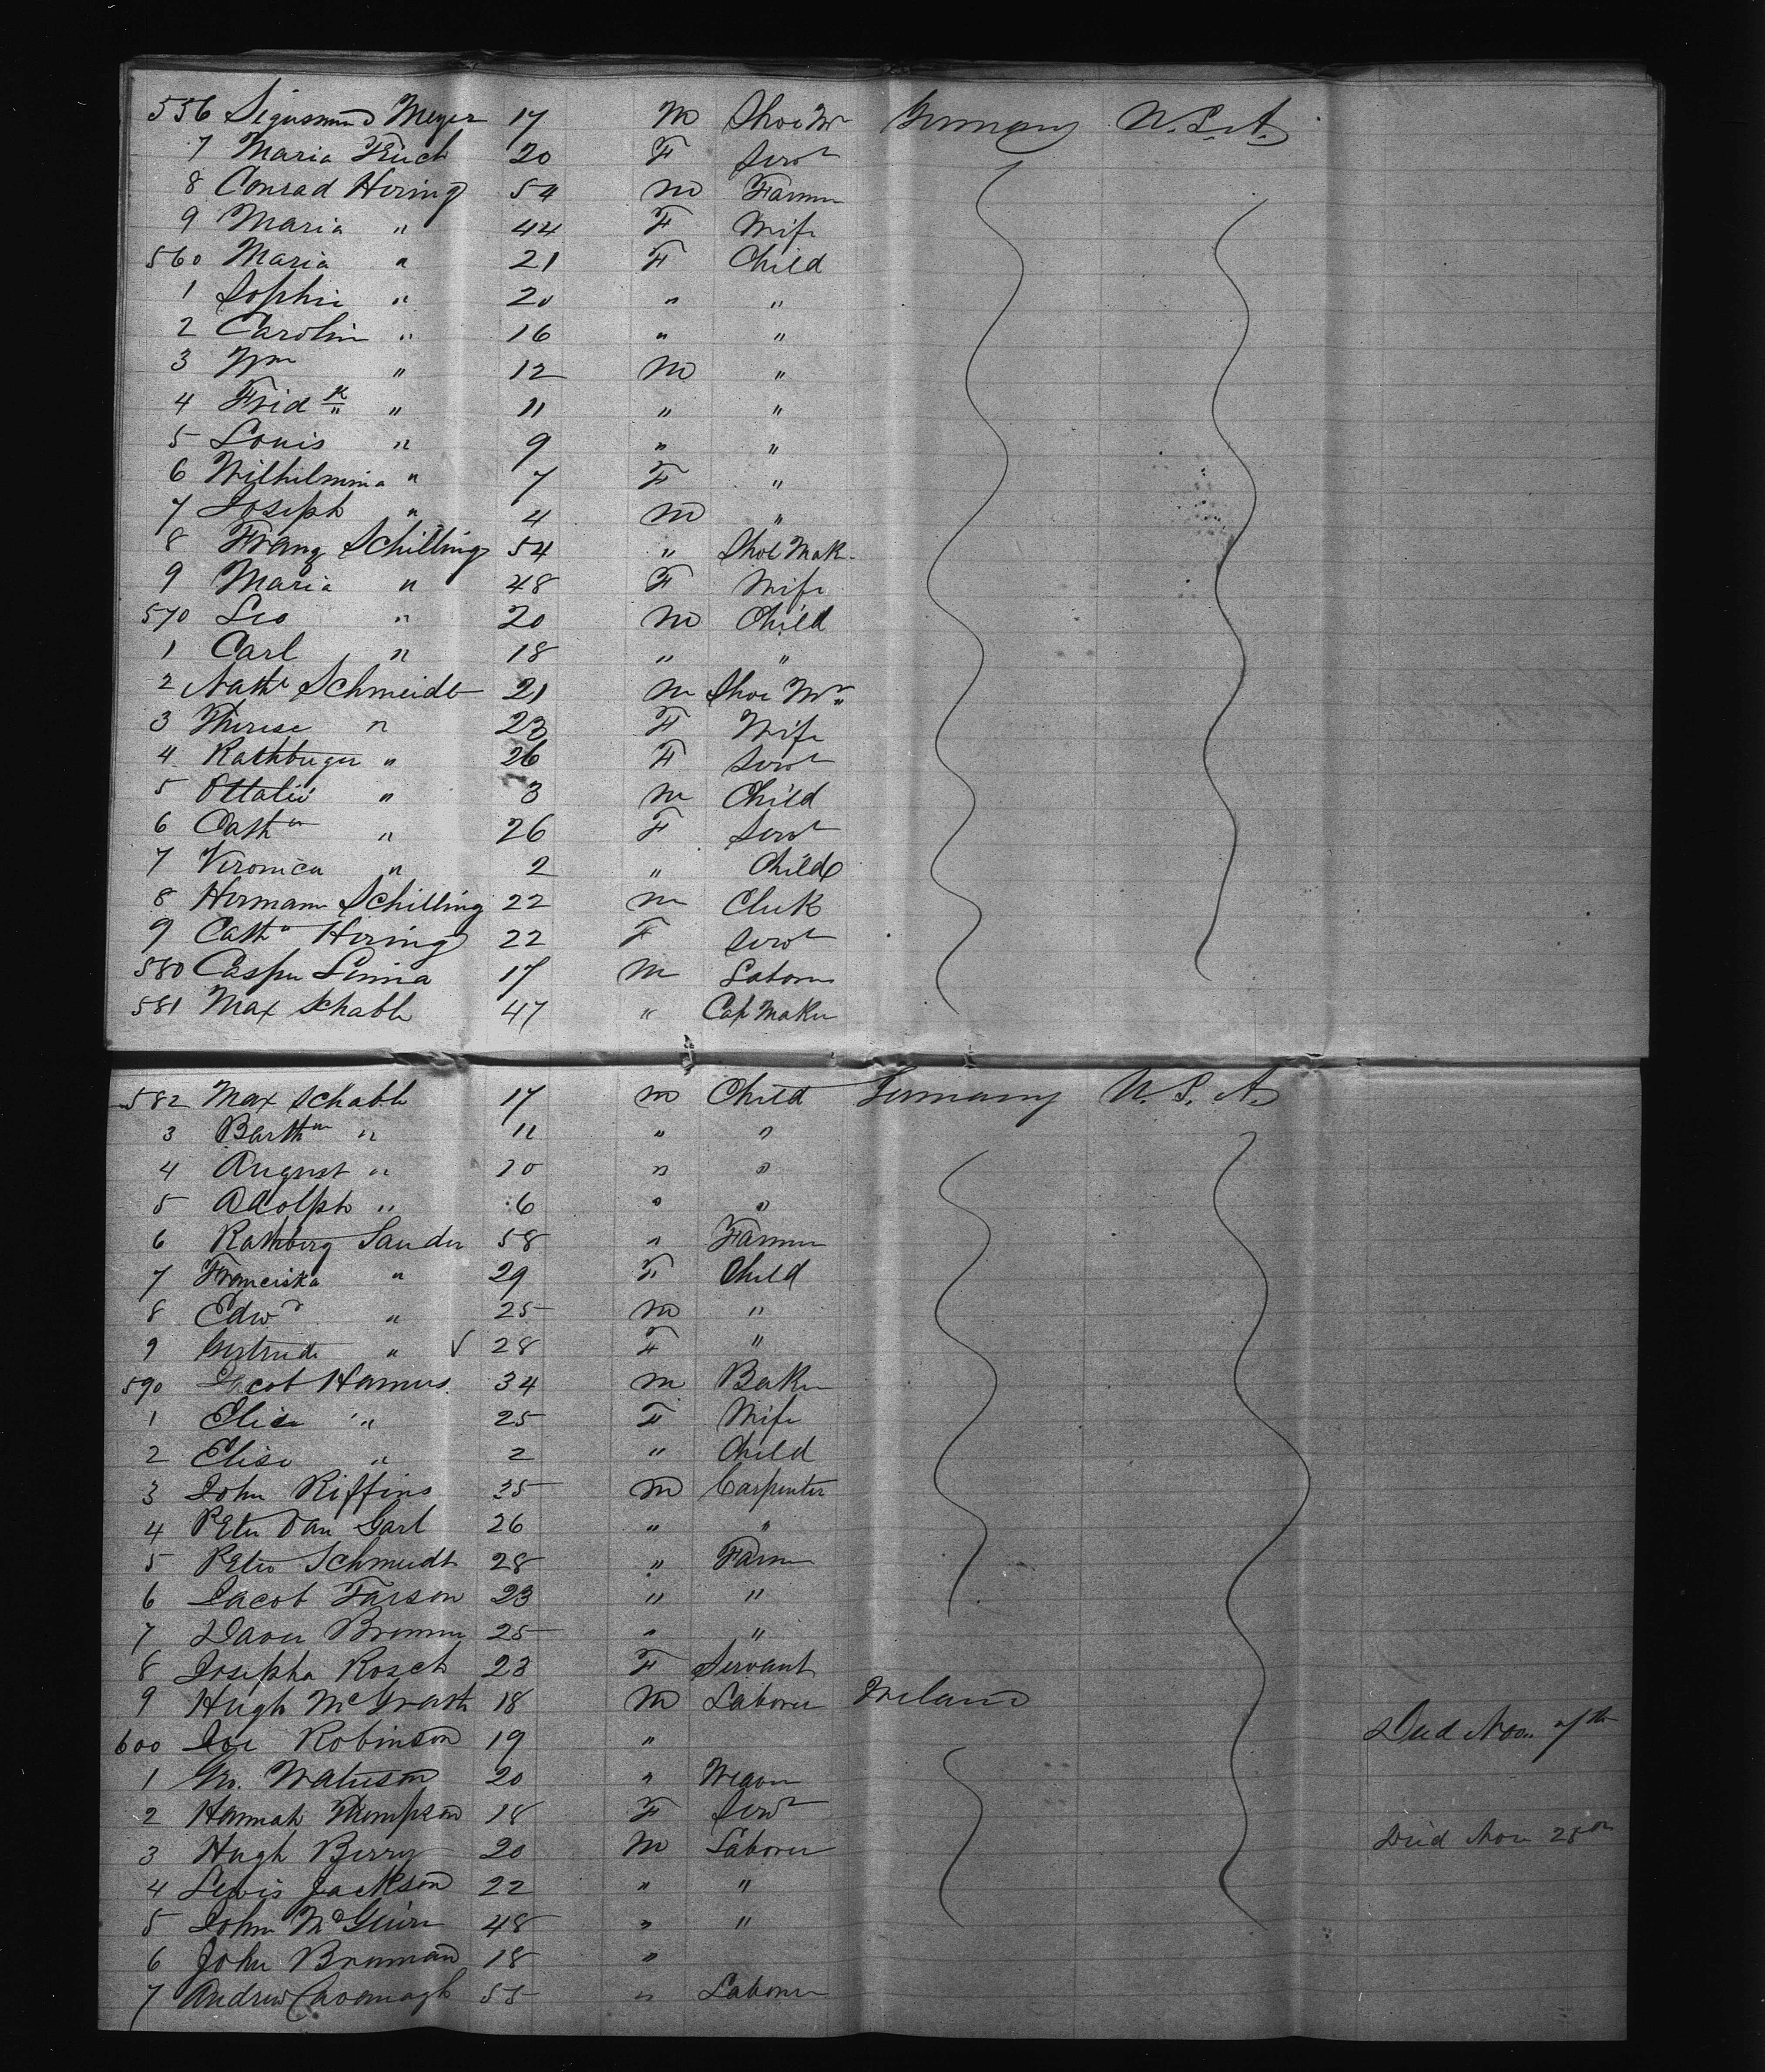 556 Sigusmund Meyer 17 M Shoe Mr Germany U.S.A.
7 Maria 20 F Servt
8 Conrad Hering 54 M Farmer
9 Maria " 44 F Wife
560 Maria " 21 F Child
1 Sophie " 20 " "
2 Carolin " 16 " "
3 Wm " 12 M "
4 Fridk " 11 " "
5 Louis " 9 " "
6 Wilhelmina " 7 F "
7 Joseph " 4 M "
8 Franz Schilling 54 " Shoe Mak.
9 Maria " 48 F Wife
570 Leo " 20 M Child
1 Carl " 18 " "
2 Schmeidt 21 M Shoe Mr
3 Therese " 23 F Wife
4 Rathburger " 26 F Servt
5 Ottalie " 3 M Child
6 Cathn " 26 F Servt
7 Veronica " 2 " Child
8 Hermann Schilling 22 M Clerk
9 Catha Hering 22 F Servt
580 Casper 17 M Laborer
581 Max Schable 47 " Cap Maker
582 Max Schable 17 M Child Germany U.S.A.
3 Barthm " 11 " "
4 August " 10 " "
5 Adolph " 6 " "
6 Rathberg Sander 58 " Farmer
7 Franciska " 29 F Child
8 Edwd " 25 M "
9 Gertrude " √ 28 F "
590 Jacob Hamus 34 M Baker
1 Elise " 25 F Wife
2 Elise " 2 " Child
3 John Riffins 35 M Carpenter
4 Peter Van Garl 26 " "
5 Peter Schmeidt 28 " Farmer
6 Jacob Farson 23 " "
7 25 " "
8 Josepha Rosch 23 F Servant
9 Hugh McGrath 18 M Laborer Ireland
600 Joe Robinson 19 " Died Nov. 7th
1 Waterson 20 "
2 Hannah Thompson 18 F Servt
3 Hugh Berry 20 M Laborer Died Nov 28th
4 Lewis Jackson 22 " "
5 John McGuire 48 " "
6 John Brennan 18 "
7 Andrew Cavanagh 55 " Laborer